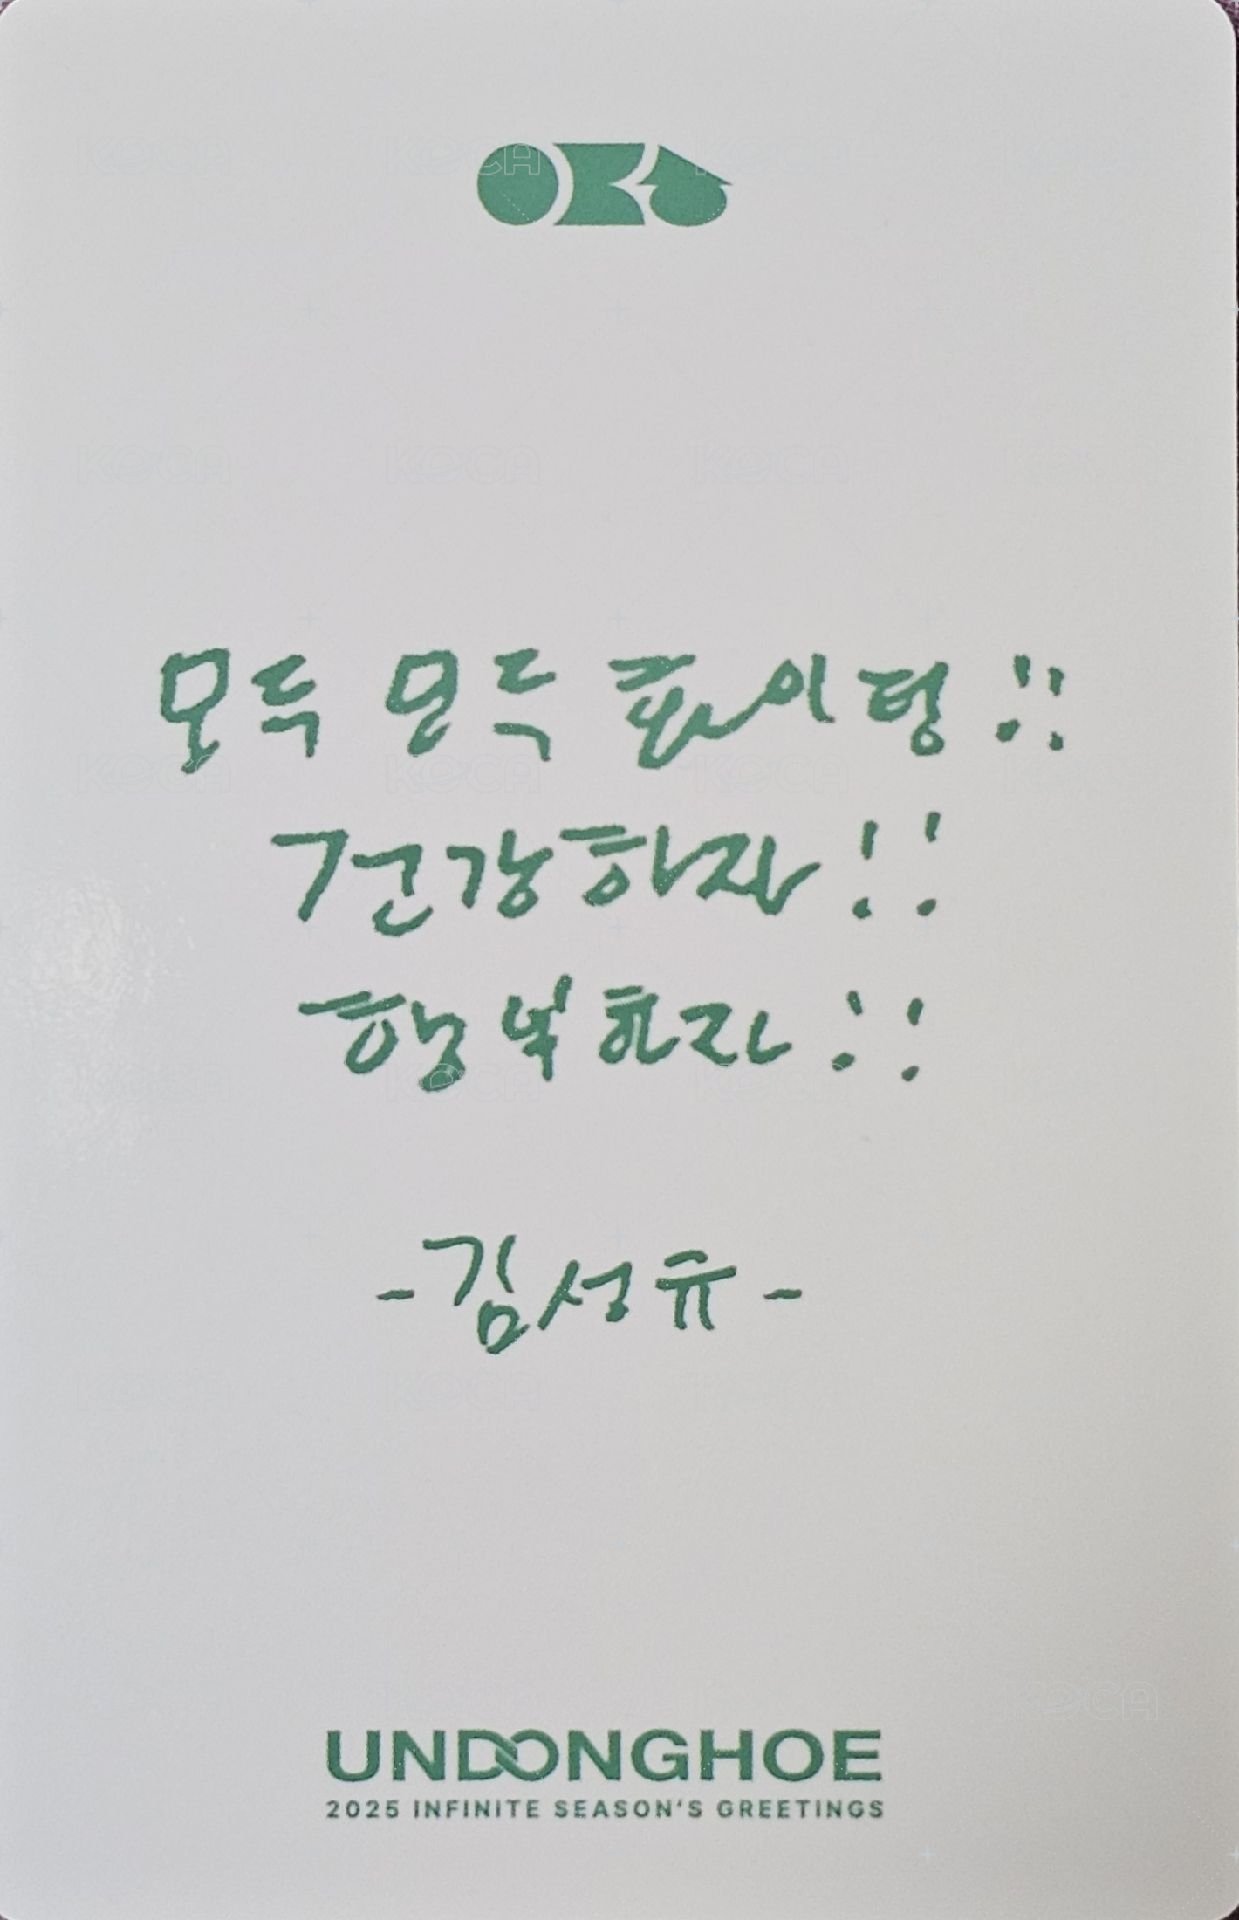 모두 모두 화이팅 !!
건강하자 !!
행복하자 !!
-김성규-
UNDONGHOE
2025 INFINITE SEASON'S GREETINGS